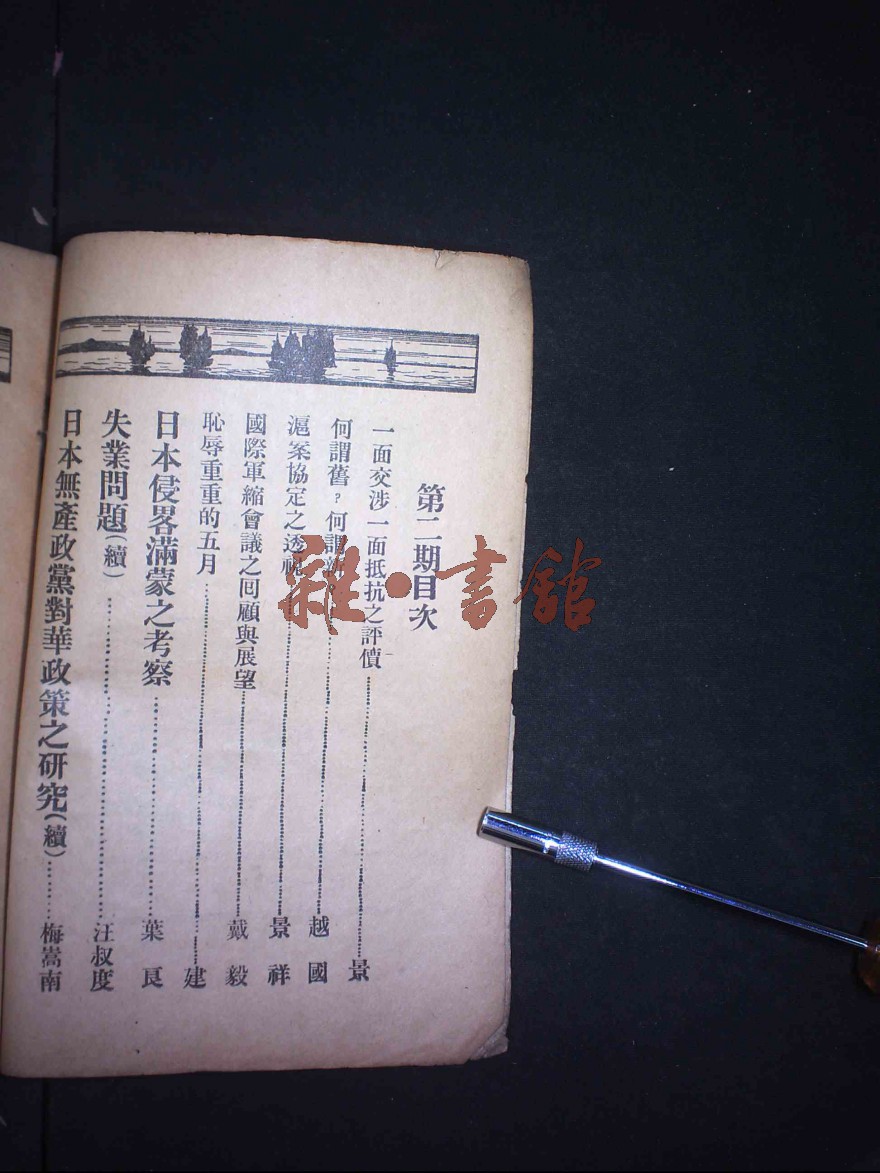 第二期目次
一面交涉一面抵抗之評價 景
何謂舊？何謂新？ 越國
滬案協定之透視 景祥
國際軍縮會議之囘顧與展望 戴毅
恥辱重重的五月 建
日本侵畧滿蒙之考察 葉良
失業問題（續） 汪叔度
日本無產政黨對華政策之研究（續） 梅嵩南
雜·書館